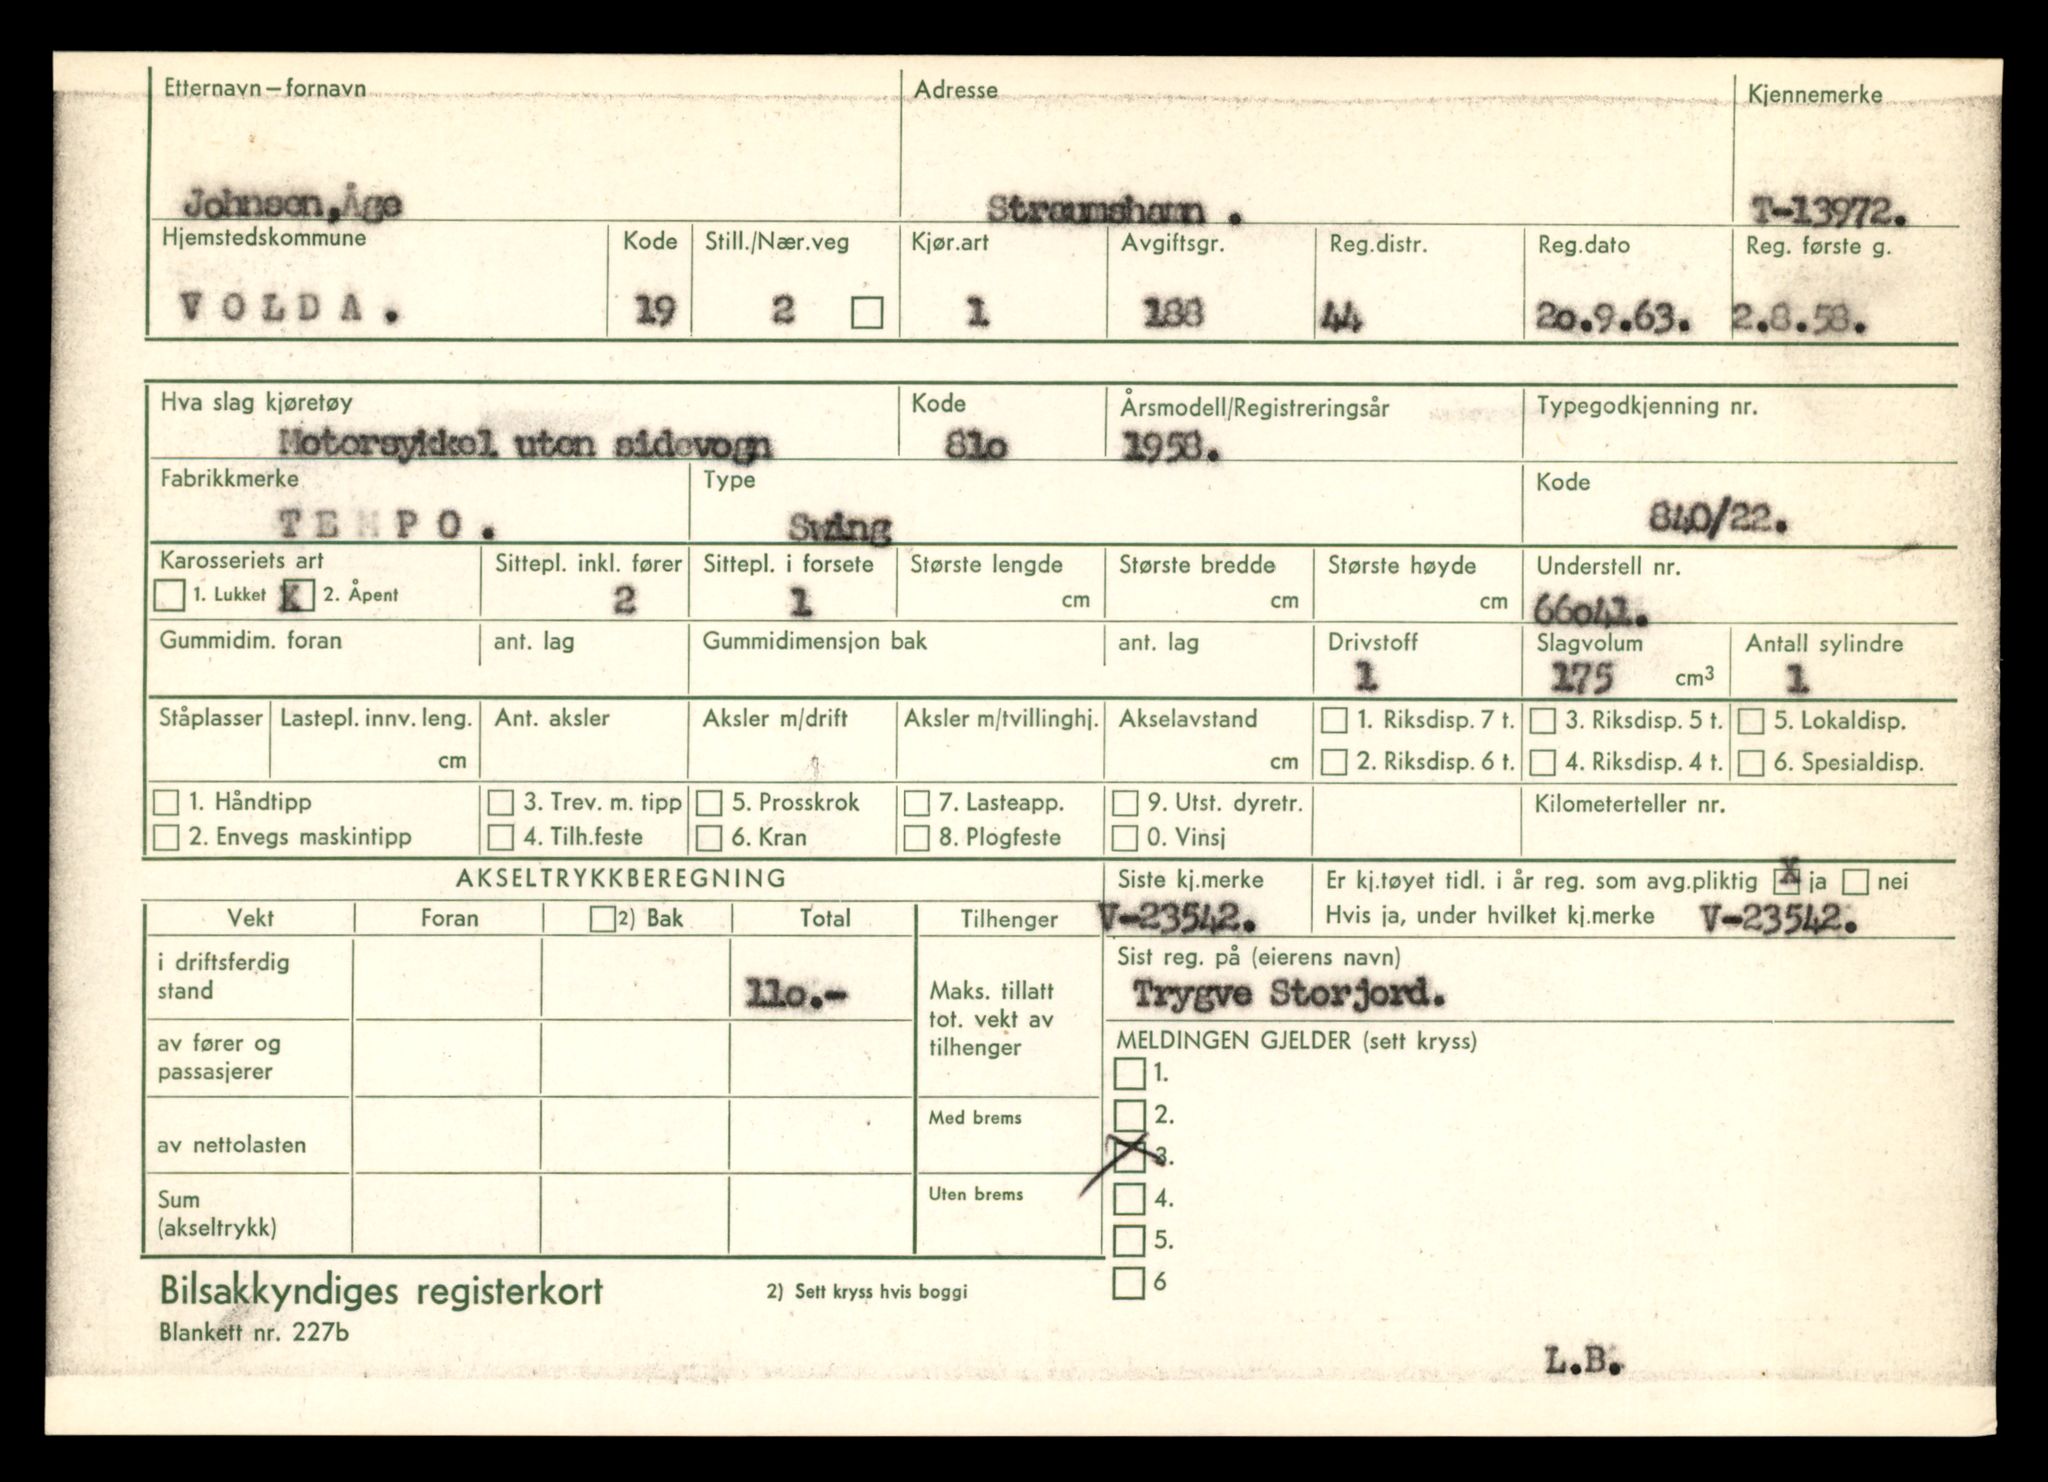 Etternavn – fornavn Adresse Kjennemerke
Johnsen, Åge Straumshamn . T-13972.
Hjemstedskommune Kode Still./Nær.veg Kjør.art Avgiftsgr. Reg.distr. Reg.dato Reg. første g.
VOLDA. 19 2 1 188 44 20.9.63. 2.8.58.
Hva slag kjøretøy Kode Årsmodell/Registreringsår Typegodkjenning nr.
Motorsykkel uten sidevogn 81o 1958.
Fabrikkmerke Type Kode
TEMPO. Swing 840/22.
Karosseriets art Sittepl. inkl. fører Sittepl. i forsete Største lengde Største bredde Største høyde Understell nr.
1. Lukket X 2. Åpent 2 1 cm cm cm 66o41.
Gummidim. foran ant. lag Gummidimensjon bak ant. lag Drivstoff Slagvolum Antall sylindre
1 175 cm3 1
Ståplasser Lastepl. innv. leng. Ant. aksler Aksler m/drift Aksler m/tvillinghj. Akselavstand 1. Riksdisp. 7 t. 3. Riksdisp. 5 t. 5. Lokaldisp.
cm cm 2. Riksdisp. 6 t. 4. Riksdisp. 4 t. 6. Spesialdisp.
1. Håndtipp 3. Trev. m. tipp 5. Prosskrok 7. Lasteapp. 9. Utst. dyretr. Kilometerteller nr.
2. Envegs maskintipp 4. Tilh.feste 6. Kran 8. Plogfeste 0. Vinsj
AKSELTRYKKBEREGNING Siste kj.merke Er kj.tøyet tidl. i år reg. som avg.pliktig X ja nei
Vekt Foran 2) Bak Total Tilhenger V-23542. Hvis ja, under hvilket kj.merke V-23542.
i driftsferdig Sist reg. på (eierens navn)
stand 11o.- Maks. tillatt Trygve Storjord.
tot. vekt av
av fører og tilhenger MELDINGEN GJELDER (sett kryss)
passasjerer 1.
Med brems 2.
av nettolasten X 3.
Sum Uten brems 4.
(akseltrykk) 5.
Bilsakkyndiges registerkort 2) Sett kryss hvis boggi 6
Blankett nr. 227b
L.B.